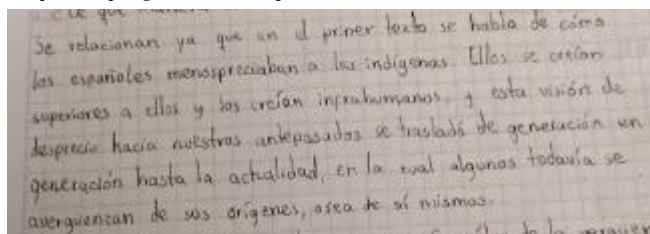 de que
Se relacionan ya que en el primer texto se habla de cómo
los españoles menospreciaban a los indígenas. Ellos se creían
superiores a ellos y los creían infrahumanos, y esta visión de
desprecio hacia nuestros antepasados se trasladó de generación en
generación hasta la actualidad, en la cual algunos todavía se
averguencan de sus orígenes, osea de sí mismos.
de la